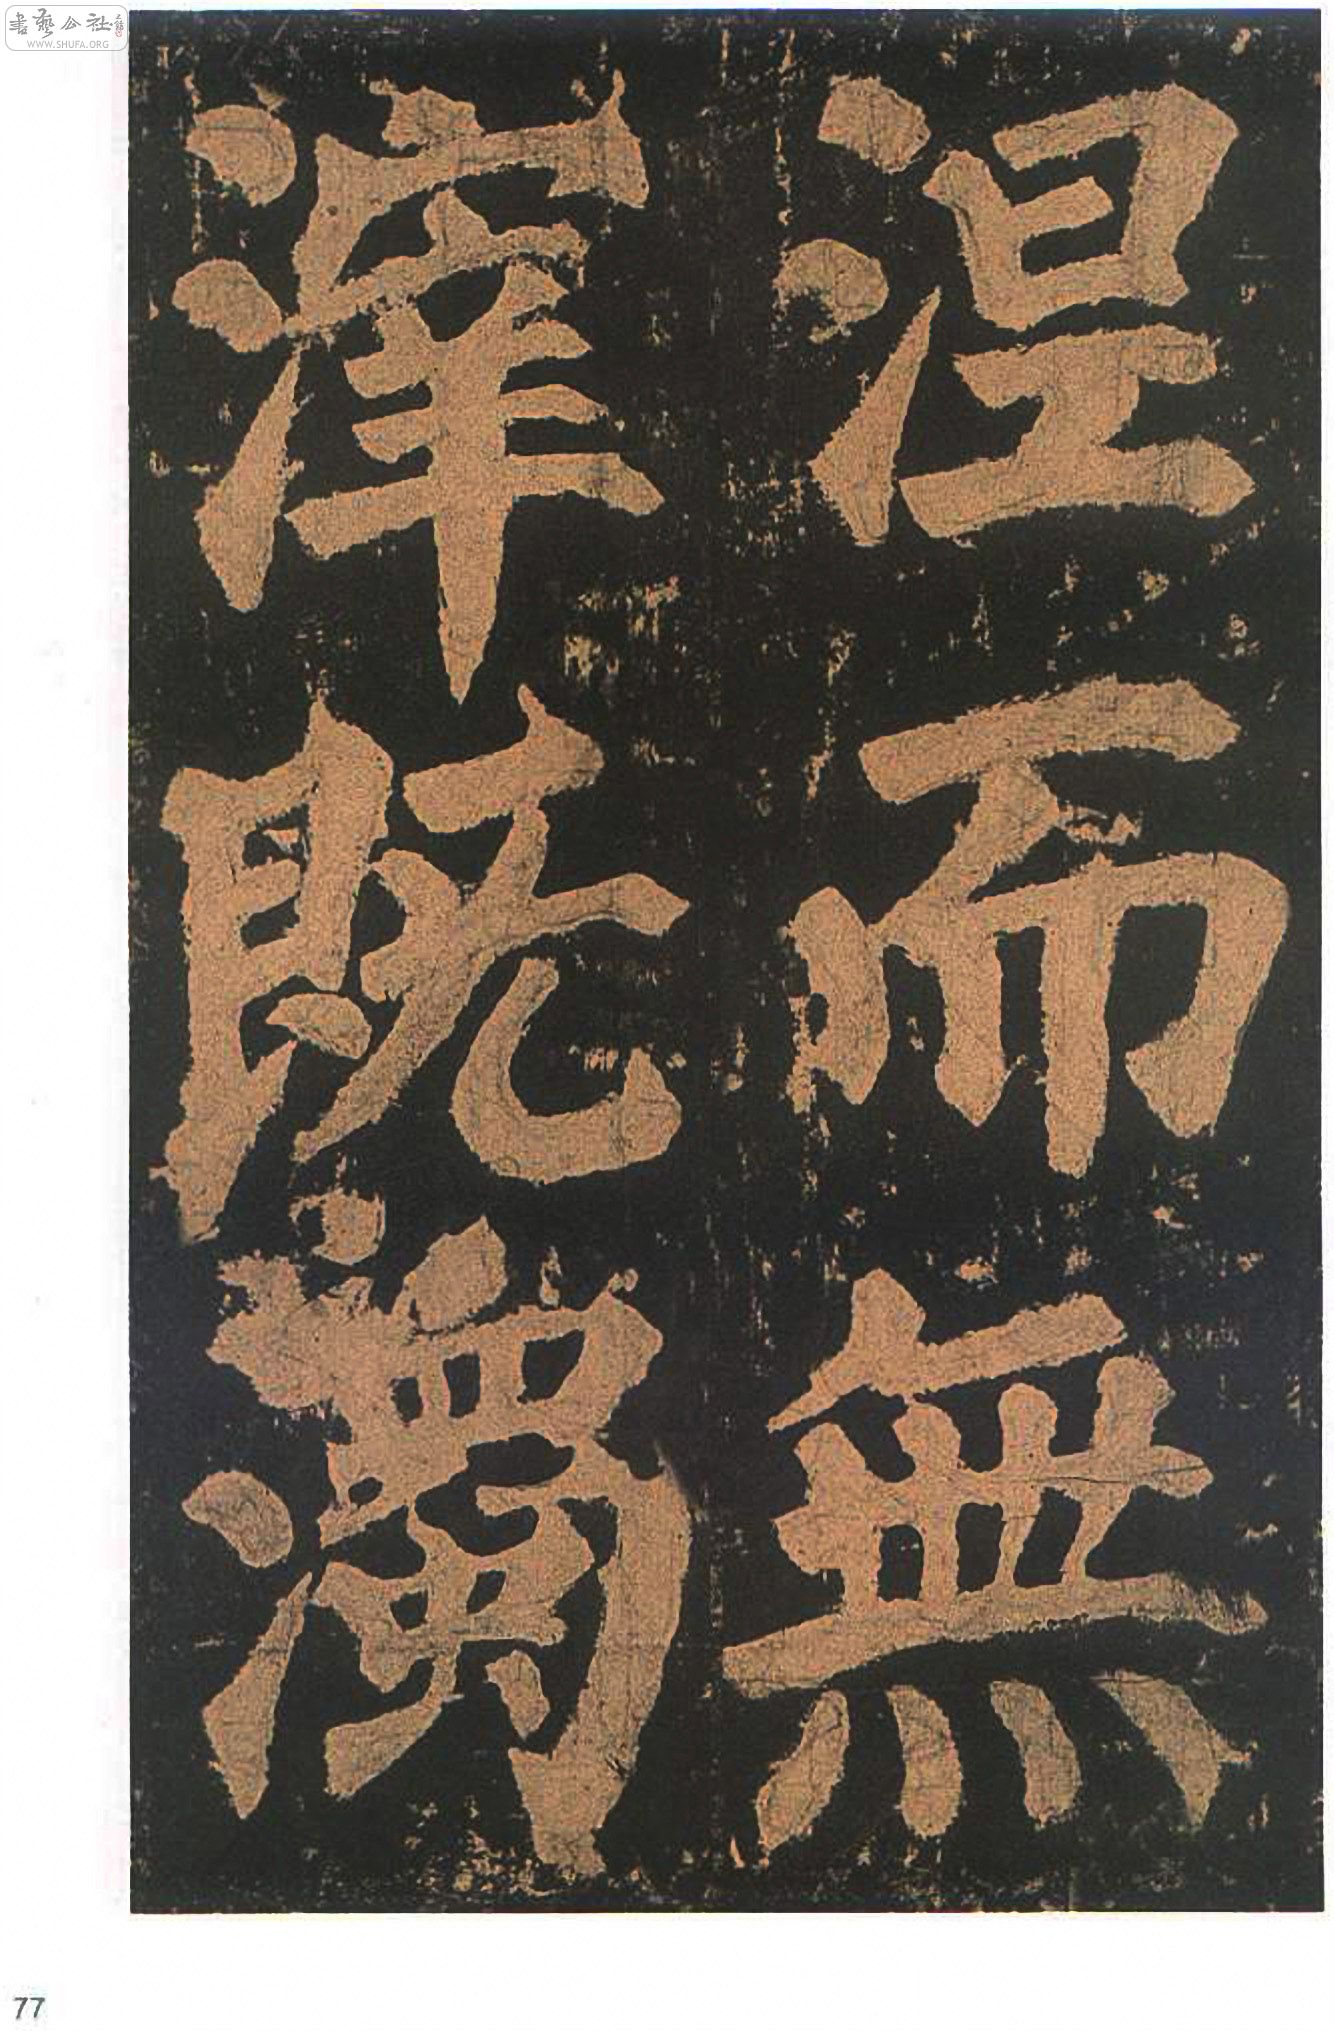 書藝公社
WWW.SHUFA.ORG
涅而無
滓既濁
77